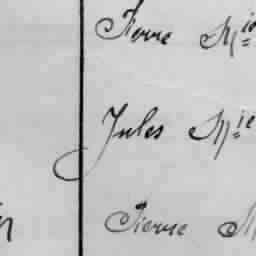 Pierre Mie
Jules Mie
Pierre M